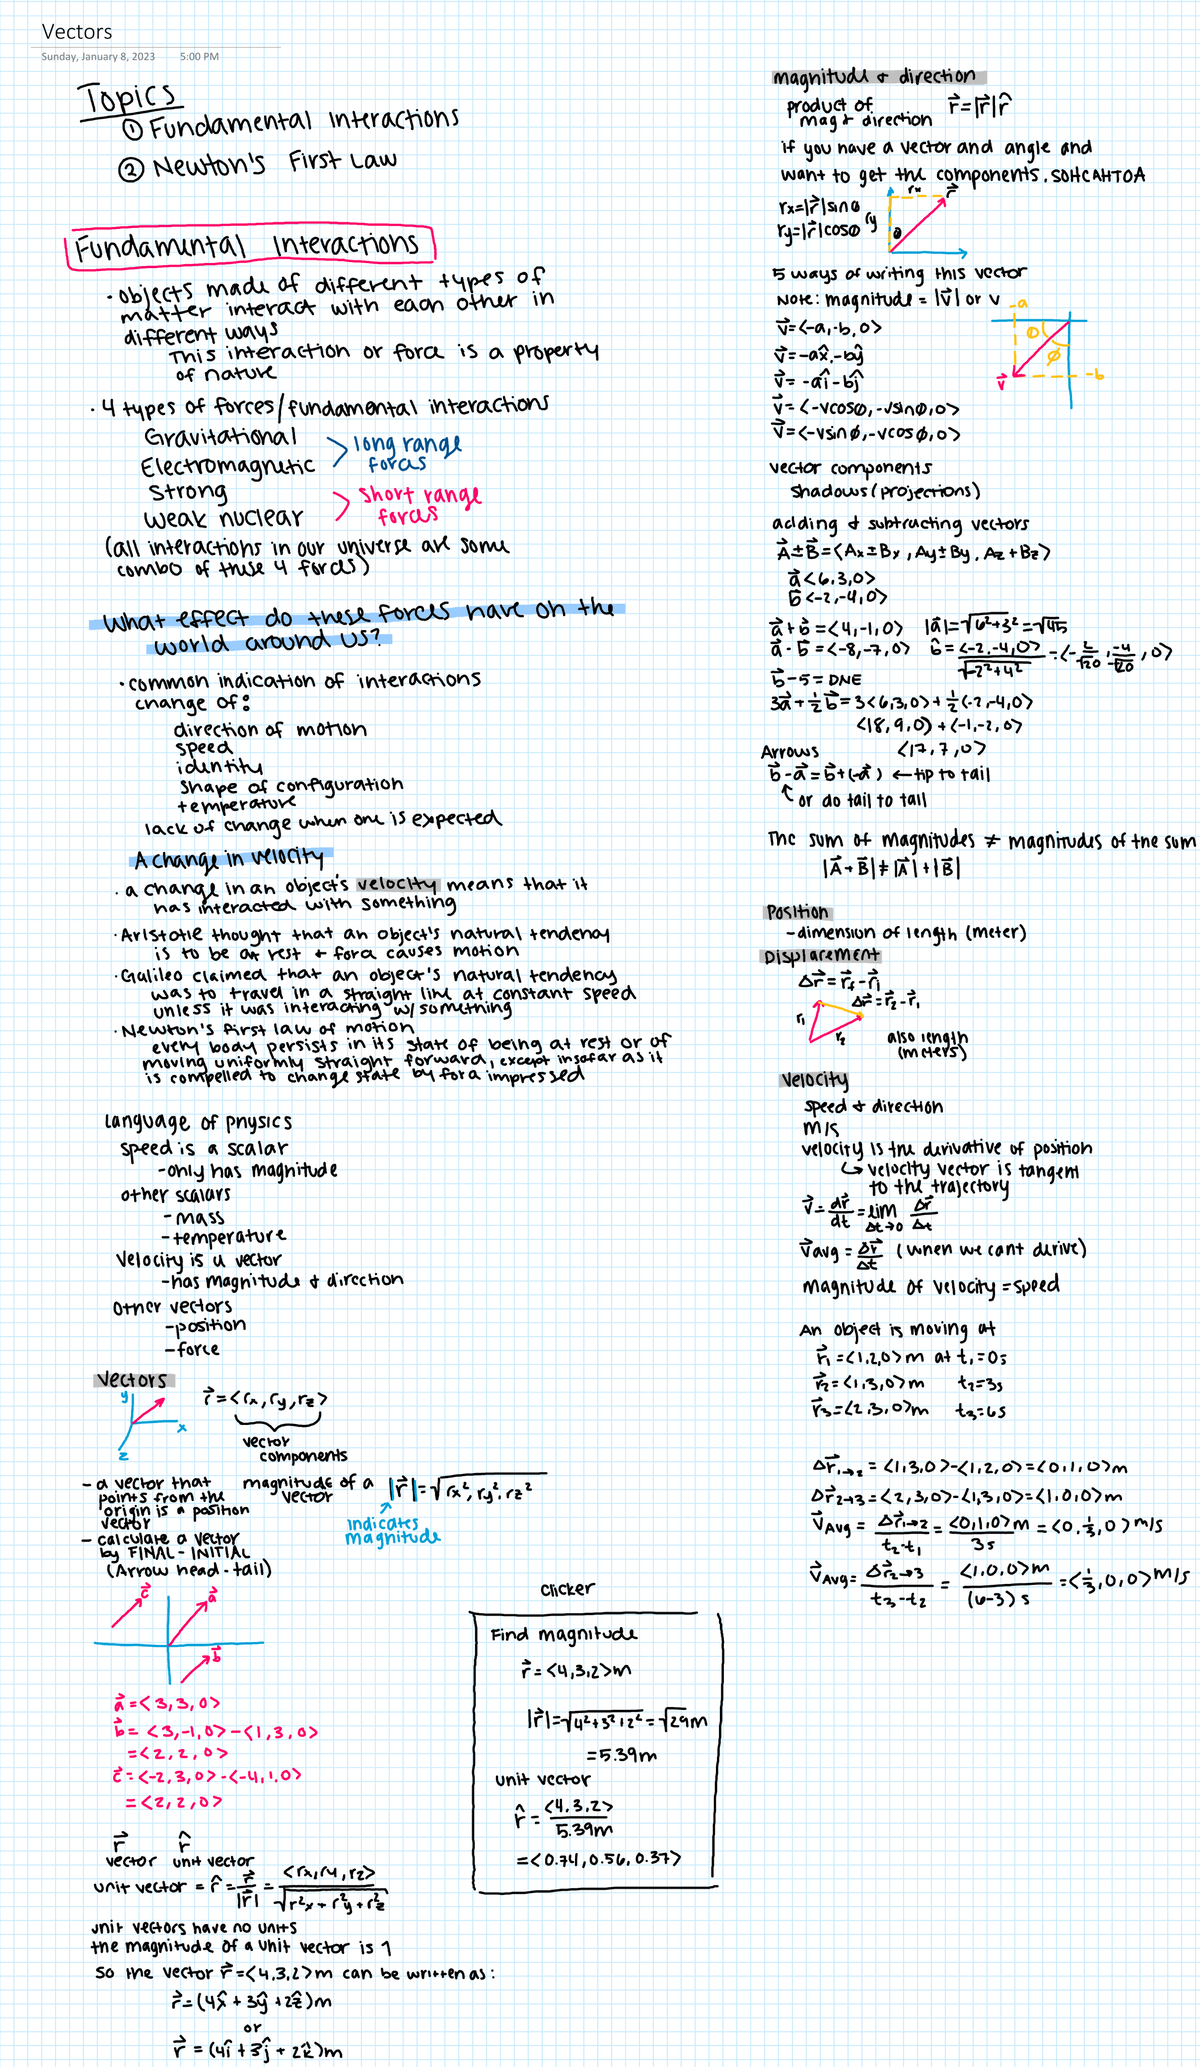 Vectors
Sunday, January 8, 2023 5:00 PM
Topics
① Fundamental Interactions
② Newton's First Law
Fundamental Interactions
• objects made of different types of
matter interact with each other in
different ways
This interaction or force is a property
of nature
• 4 types of forces/fundamental interactions
Gravitational
Electromagnetic > long range forces
Strong
weak nuclear > short range forces
(all interactions in our universe are some
combo of these 4 forces)
What effect do these forces have on the
world around us?
• common indication of interactions
change of:
direction of motion
speed
identity
shape of configuration
temperature
lack of change when one is expected
A change in velocity
• a change in an object's velocity means that it
has interacted with something
• Aristotle thought that an object's natural tendency
is to be at rest + force causes motion
• Galileo claimed that an object's natural tendency
was to travel in a straight line at constant speed
unless it was interacting w/ something
• Newton's first law of motion
every body persists in its state of being at rest or of
moving uniformly straight forward, except insofar as it
is compelled to change state by force impressed
language of physics
speed is a scalar
-only has magnitude
other scalars
-mass
-temperature
Velocity is a vector
-has magnitude & direction
other vectors
-position
-force
Vectors
y
x
z
r⃗=<rx,ry,rz>
vector
components
- a vector that
points from the
origin is a position
vector
magnitude of a
vector
|r⃗|=√rx², ry², rz²
indicates
magnitude
- calculate a vector
by FINAL - INITIAL
(Arrow head - tail)
c⃗
a⃗
b⃗
a⃗=<3,3,0>
b⃗= <3,-1,0>-<1,3,0>
=<2,2,0>
c⃗=<-2,3,0>-<-4,1,0>
=<2,2,0>
r⃗ r̂
vector unit vector
unit vector = r̂ = r⃗/|r⃗| = <rx,ry,rz>/√r²x + r²y + r²z
unit vectors have no units
the magnitude of a unit vector is 1
so the vector r⃗=<4,3,2>m can be written as:
r⃗=(4x̂ + 3ŷ +2ẑ)m
or
r⃗ = (4î +3ĵ + 2k̂)m
clicker
Find magnitude
r⃗=<4,3,2>m
|r⃗|=√4²+3²+2²=√29m
=5.39m
unit vector
r̂ = <4,3,2>/5.39m
=<0.74,0.56,0.37>
magnitude & direction
product of
mag & direction r⃗=|r⃗|r̂
if you have a vector and angle and
want to get the components, SOHCAHTOA
rx=|r⃗|sinθ
ry=|r⃗|cosθ
rx
r⃗
ry
θ
5 ways of writing this vector
Note: magnitude = |v⃗| or v
v⃗=<-a,-b,0>
v⃗=-ax̂,-bŷ
v⃗= -aî-bĵ
v⃗=<-vcosθ,-vsinθ,0>
v⃗=<-vsinϕ,-vcosϕ,0>
-a
θ
ϕ
v⃗
-b
vector components
shadows (projections)
adding & subtracting vectors
A⃗±B⃗=<Ax±Bx, Ay±By, Az+Bz>
a⃗<6,3,0>
b⃗<-2,-4,0>
a⃗+b⃗=<4,-1,0> |a⃗|=√6²+3²=√45
a⃗-b⃗=<-8,-7,0> b̂=<-2,-4,0>/√-2²+4²=<-2/√20,-4/√20,0>
b⃗-5=DNE
3a⃗+½b⃗=3<6,3,0>+½<-2,-4,0>
<18,9,0>+<-1,-2,0>
<17,7,0>
Arrows
b⃗-a⃗=b⃗+(-a⃗) ←tip to tail
↑ or do tail to tail
The sum of magnitudes ≠ magnitudes of the sum
|A⃗+B⃗|≠|A⃗|+|B⃗|
Position
-dimension of length (meter)
Displacement
Δr⃗=r⃗f-r⃗i
Δr⃗=r⃗2-r⃗1
r1
r2
also length
(meters)
Velocity
speed & direction
m/s
velocity is the derivative of position
↳ velocity vector is tangent
to the trajectory
v⃗=dr⃗/dt=lim Δt→0 Δr⃗/Δt
v⃗avg=Δr⃗/Δt (when we cant derive)
magnitude of velocity=speed
An object is moving at
r⃗1=<1,2,0>m at t1=0s
r⃗2=<1,3,0>m t2=3s
r⃗3=<2,3,0>m t3=6s
Δr⃗1→2=<1,3,0>-<1,2,0>=<0,1,0>m
Δr⃗2→3=<2,3,0>-<1,3,0>=<1,0,0>m
v⃗Avg=Δr⃗1→2/t2-t1=<0,1,0>m/3s=<0,⅓,0>m/s
v⃗Avg=Δr⃗2→3/t3-t2=<1,0,0>m/(6-3)s=<⅓,0,0>m/s